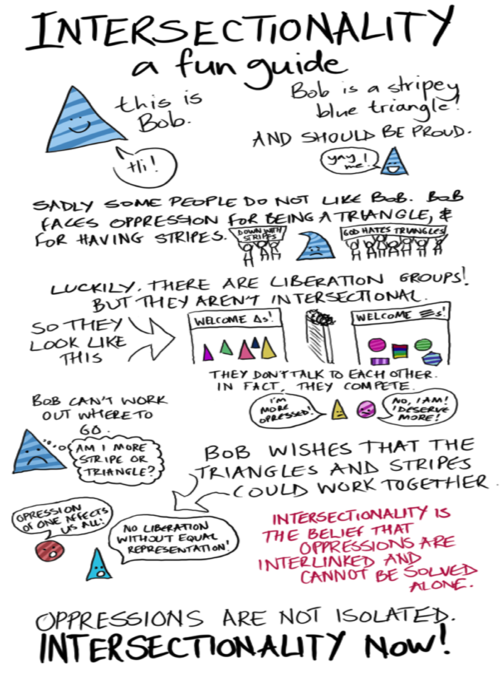 INTERSECTIONALITY
a fun guide
this is
Bob.
Hi!
Bob is a stripey
blue triangle!
AND SHOULD BE PROUD.
yay
me!
SADLY SOME PEOPLE DO NOT LIKE BOB. BOB
FACES OPPRESSION FOR BEING A TRIANGLE, &
FOR HAVING STRIPES.
DOWN WITH
STRIPES
GOD HATES TRIANGLES
LUCKILY, THERE ARE LIBERATION GROUPS!
BUT THEY AREN'T INTERSECTIONAL.
SO THEY
LOOK LIKE
THIS
WELCOME Δs!
WELCOME ≡s!
THEY DON'T TALK TO EACH OTHER.
IN FACT, THEY COMPETE.
I'M
MORE
OPRESSED!
NO, I AM!
I DESERVE
MORE!
BOB CAN'T WORK
OUT WHERE TO
GO.
AM I MORE
STRIPE OR
TRIANGLE?
BOB WISHES THAT THE
TRIANGLES AND STRIPES
COULD WORK TOGETHER.
OPRESSION
OF ONE AFFECTS
US ALL!
NO LIBERATION
WITHOUT EQUAL
REPRESENTATION!
INTERSECTIONALITY IS
THE BELIEF THAT
OPPRESSIONS ARE
INTERLINKED AND
CANNOT BE SOLVED
ALONE.
OPPRESSIONS ARE NOT ISOLATED.
INTERSECTIONALITY NOW!